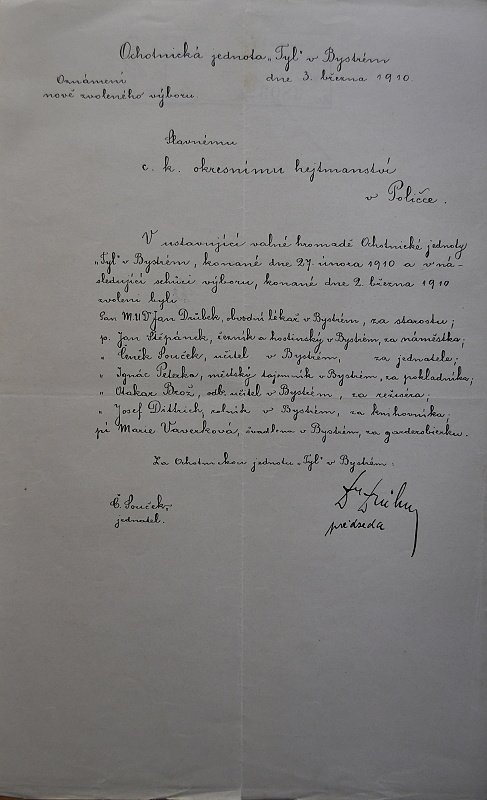 Ochotnická jednota „Tyl" v Bystrém
Oznámení dne 3. března 1910.
nově zvoleného výboru.
Slavnému
c. k. okresnímu hejtmanství
v Poličce.
V ustavující valné hromadě Ochotnické jednoty
„Tyl" v Bystrém, konané dne 27. února 1910 a v ná-
sledující schůzi výboru, konané dne 2. března 1910
zvoleni byli:
Pan M.U.Dr Jan Drůbek, obvodní lékař v Bystrém, za starostu;
p. Jan Štěpánek, řezník a hostinský v Bystrém, za náměstka;
„ Čeněk Souček, učitel v Bystrém, za jednatele;
„ Ignác Peterka, městský tajemník v Bystrém, za pokladníka;
„ Otakar Brož, odb. učitel v Bystrém, za režiséra;
„ Josef Dittrich, rolník v Bystrém, za knihovníka;
pí Marie Vaverková, švadlena v Bystrém, za garderobierku.
Za Ochotnickou jednotu „Tyl" v Bystrém:
Č. Souček,
jednatel.
předseda